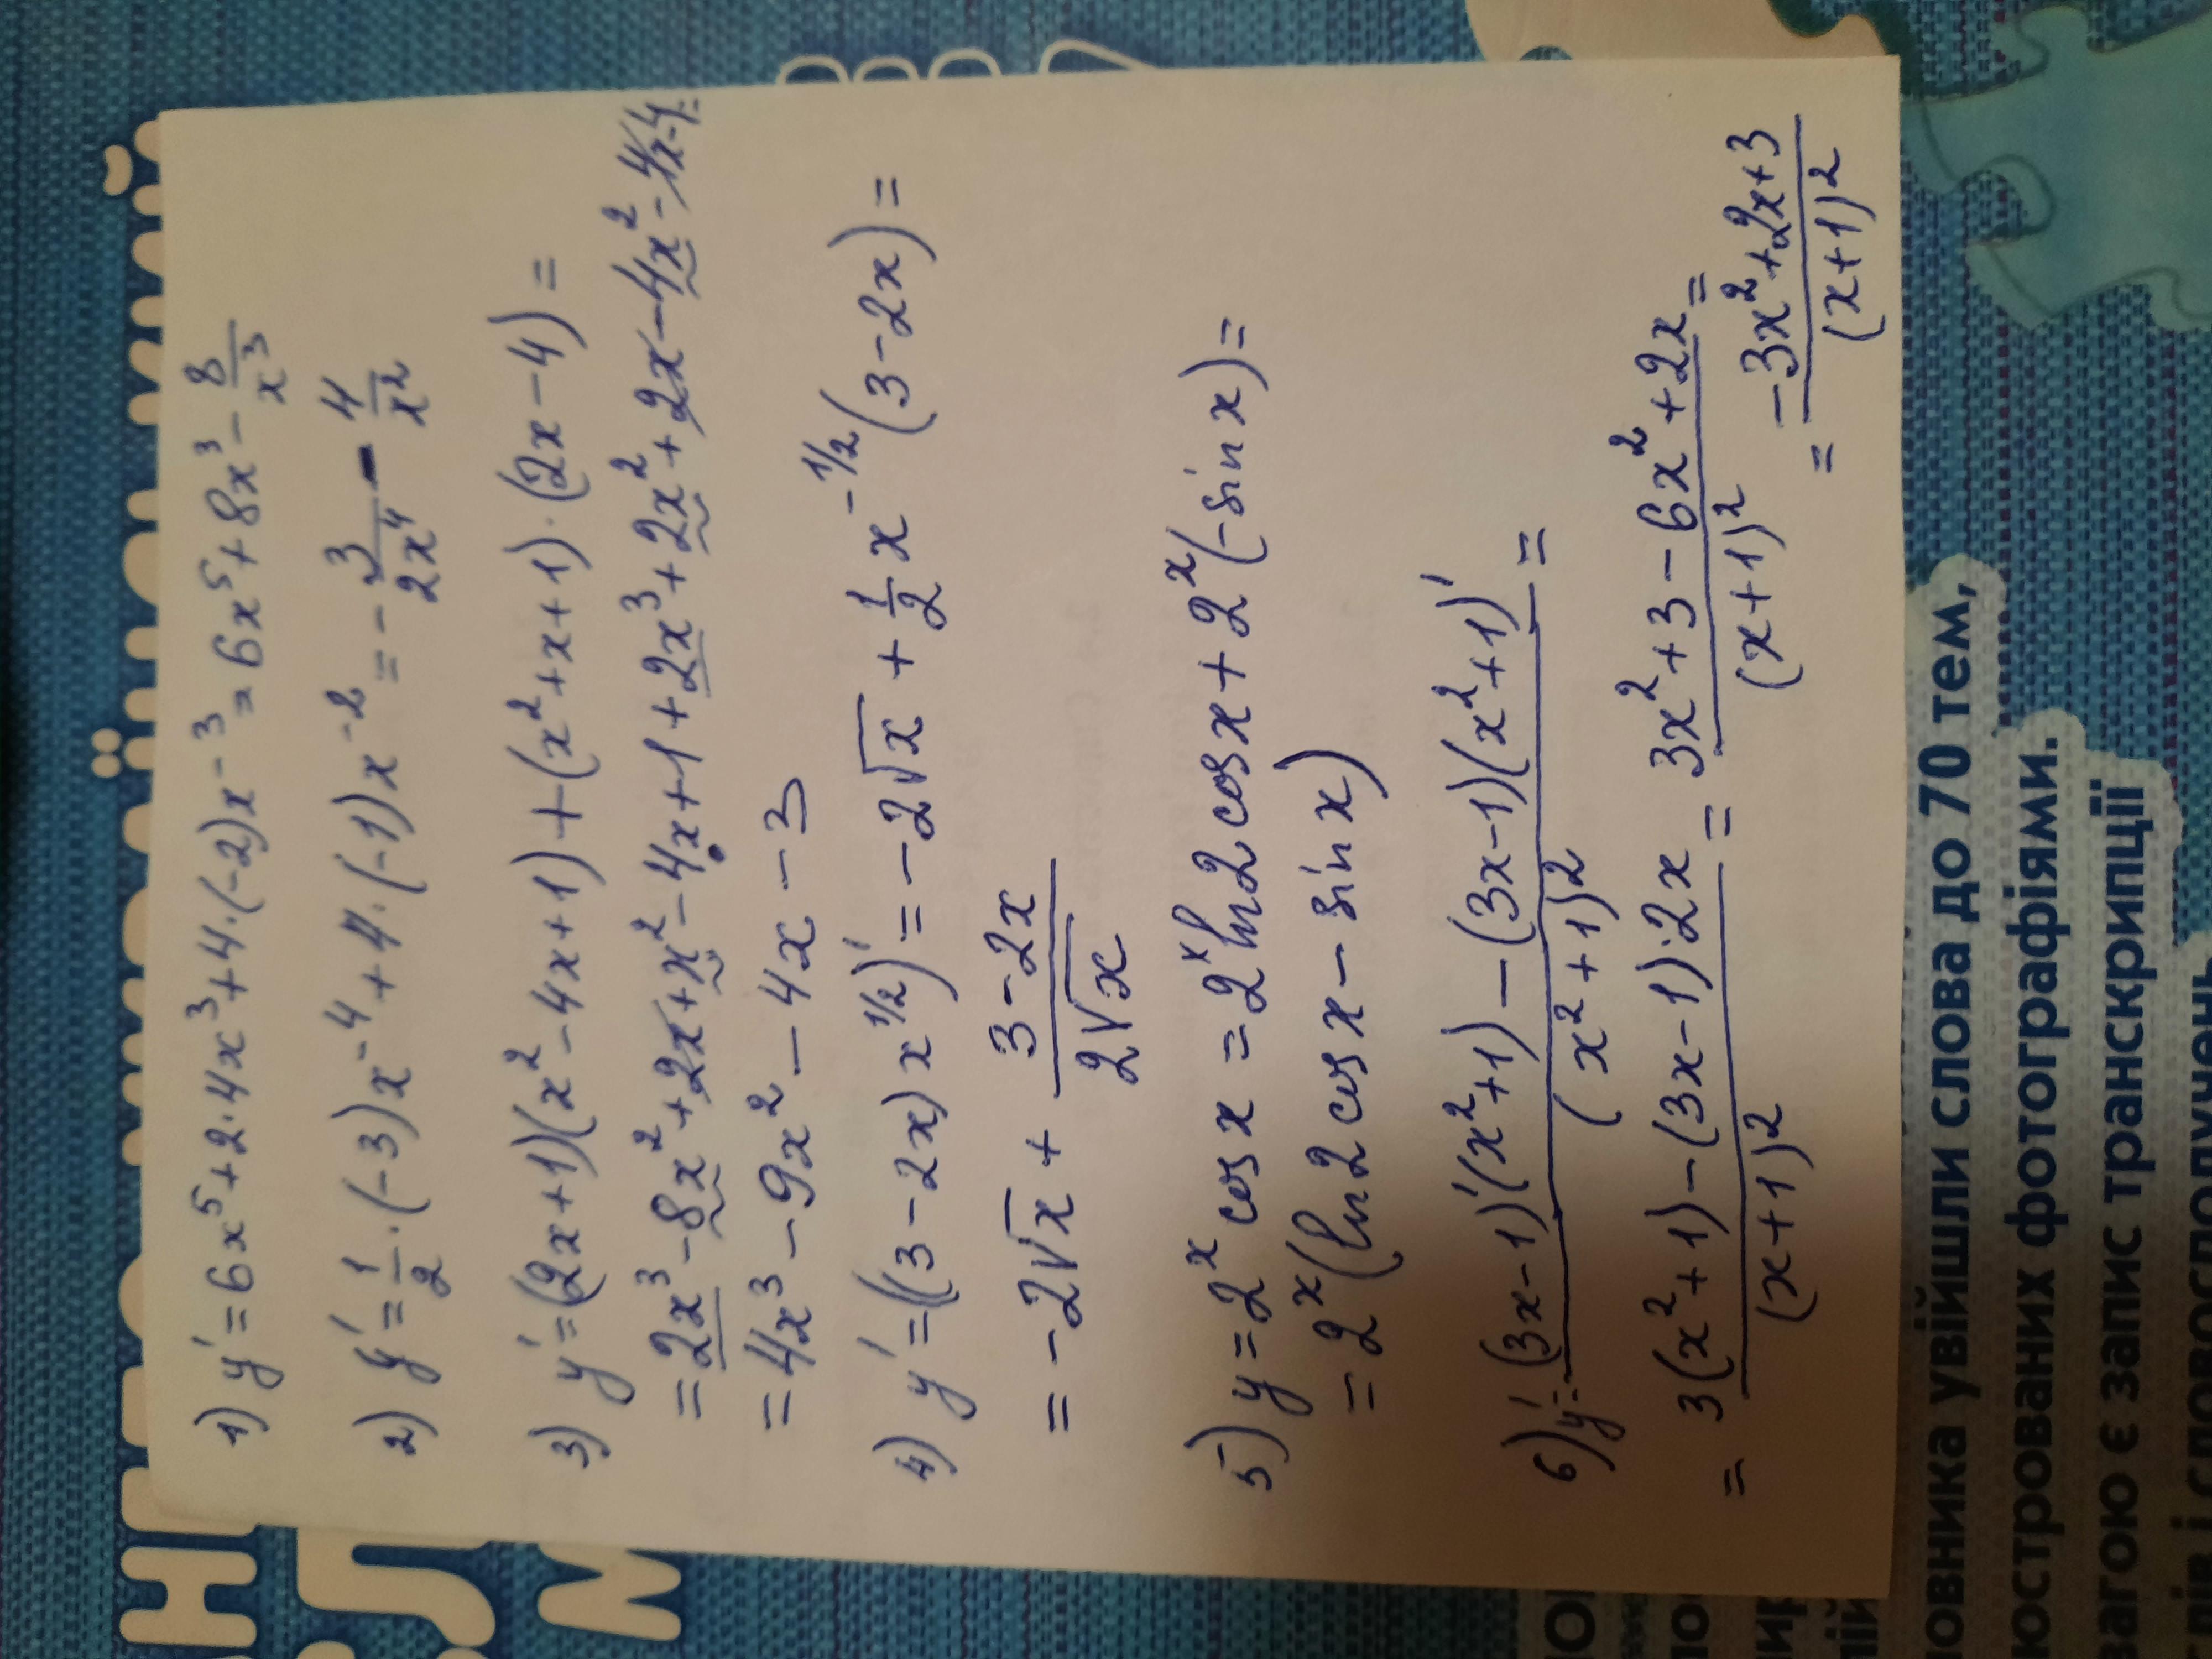 1) y' = 6x⁵ + 2·4x³ + 4·(-2)x⁻³ = 6x⁵ + 8x³ - 8/x³
2) y' = 1/2·(-3)x⁻⁴ + 4·(-1)x⁻² = -3/2x⁴ - 4/x²
3) y' = (2x+1)(x²-4x+1) + (x²+x+1)·(2x-4) =
= 2x³ - 8x² + 2x + x² - 4x + 1 + 2x³ + 2x² + 2x - 4x² - 4x - 4 =
= 4x³ - 9x² - 4x - 3
4) y' = ((3-2x)x^1/2)' = -2√x + 1/2 x^-1/2 (3-2x) =
= -2√x + 3-2x/2√x
5) y = 2ˣ cos x = 2ˣ ln2 cos x + 2ˣ(-sin x) =
= 2ˣ(ln2 cos x - sin x)
6) y' = (3x-1)'(x²+1) - (3x-1)(x²+1)'/(x²+1)² =
= 3(x²+1) - (3x-1)·2x/(x+1)² = 3x²+3-6x²+2x/(x+1)² =
= -3x²+2x+3/(x+1)²
овника увійшли слова до 70 тем,
юстрованих фотографіями.
загою є запис транскрипції